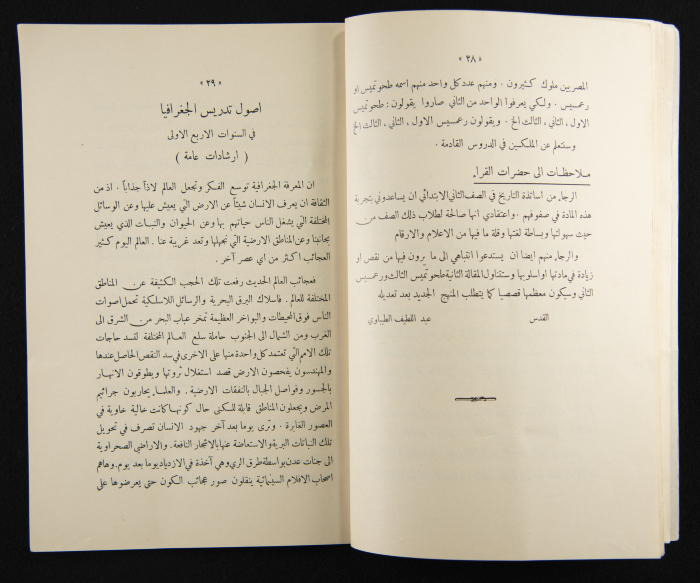 « ٢٨ »
المصريين ملوك كثيرون . ومنهم عدد كل واحد منهم اسمه طحوتميس او
رعمسيس . ولكي يعرفوا الواحد من الثاني صاروا يقولون : طحوتميس
الاول ، الثاني ، الثالث الخ . ويقولون رعمسيس الاول ، الثاني ، الثالث الخ
وستتعلم عن الملكين في الدروس القادمة .
ملاحظات الى حضرات القراء
الرجاء من اساتذة التاريخ في الصف الثاني الابتدائي ان يساعدوني بتجربة
هذه المادة في صفوفهم . واعتقادي انها صالحة لطلاب ذلك الصف من
حيث سهولتها وبساطة لغتها وقلة ما فيها من الاعلام والارقام
والرجاء منهم ايضا ان يستدعوا انتباهي الى ما يرون فيها من نقص او
زيادة في مادتها او اسلوبها وستتناول المقالة الثانية طحوتميس الثالث ورعمسيس
الثاني وسيكون معظمها قصصيا كما يتطلب المنهج الجديد بعد تعديله
القدس عبد اللطيف الطيباوي
« ٢٩ »
اصول تدريس الجغرافيا
في السنوات الاربع الاولى
( ارشادات عامة )
ان المعرفة الجغرافية توسع الفكر وتجعل العالم لاذاً جذاباً . اذ من
الثقافة ان يعرف الانسان شيئاً عن الارض التي يعيش عليها وعن الوسائل
المختلفة التي يشغل الناس حياتهم بها وعن الحيوان والنبات الذي يعيش
بجانبنا وعن المناطق الارضية التي نجهلها وتعد غريبة عنا . العالم اليوم كثير
العجائب اكثر من اي عصر آخر .
فعجائب العالم الحديث رفعت تلك الحجب الكثيفة عن المناطق
المختلفة للعالم . فاسلاك البرق البحرية والرسائل اللاسلكية تحمل اصوات
الناس فوق المحيطات والبواخر العظيمة تمخر عباب البحر من الشرق الى
الغرب ومن الشمال الى الجنوب حاملة سلع العالم المختلفة لسد حاجات
تلك الامم التي تعتمد كل واحدة منها على الاخرى في سد النقص الحاصل عندها
والمهندسون يفحصون الارض قصد استغلال ثروتها ويطوقون الانهار
بالجسور وفواصل الجبال بالنفقات الارضية . والعلماء يحاربون جراثيم
المرض ويجعلون المناطق قابلة للسكنى حال كونها كانت خالية خاوية في
العصور الغابرة . وترى يوما بعد آخر جهود الانسان تصرف في تحويل
تلك النباتات البرية والاستعاضة عنها بالاشجار النافعة . والاراضي الصحراوية
الى جنات عدن بواسطة طرق الري وهي آخذة في الازدياد يوما بعد يوم . وهاهم
اصحاب الافلام السينمائية ينقلون صور عجائب الكون حتى يعرضوها على